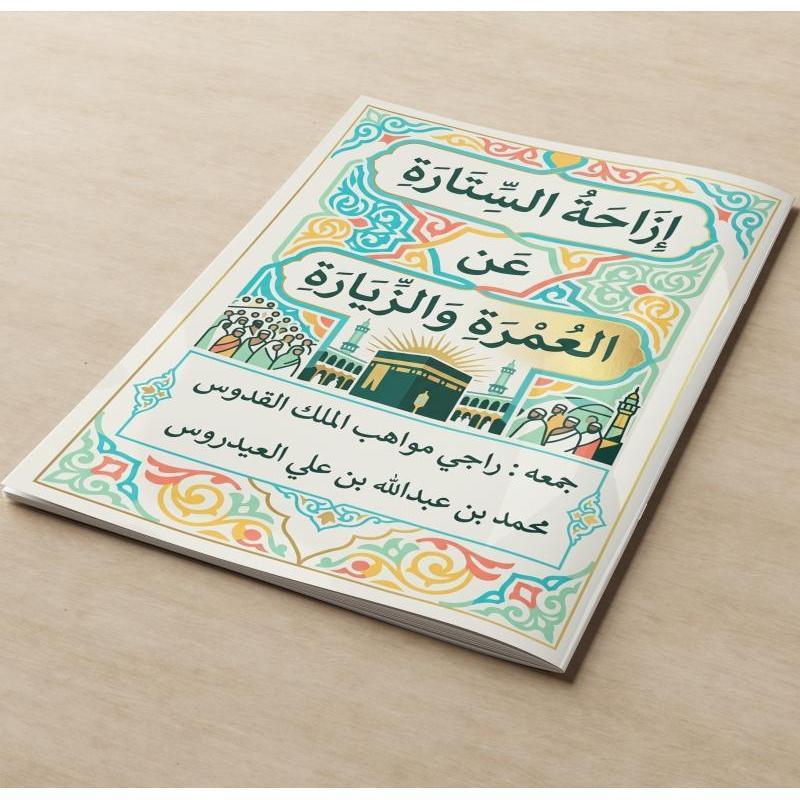 إِزَاحَةُ السِّتَارَةِ
عَن
العُمْرَةِ وَالزِّيَارَةِ
جمعه : راجي مواهب الملك القدوس
محمد بن عبدالله بن علي العيدروس